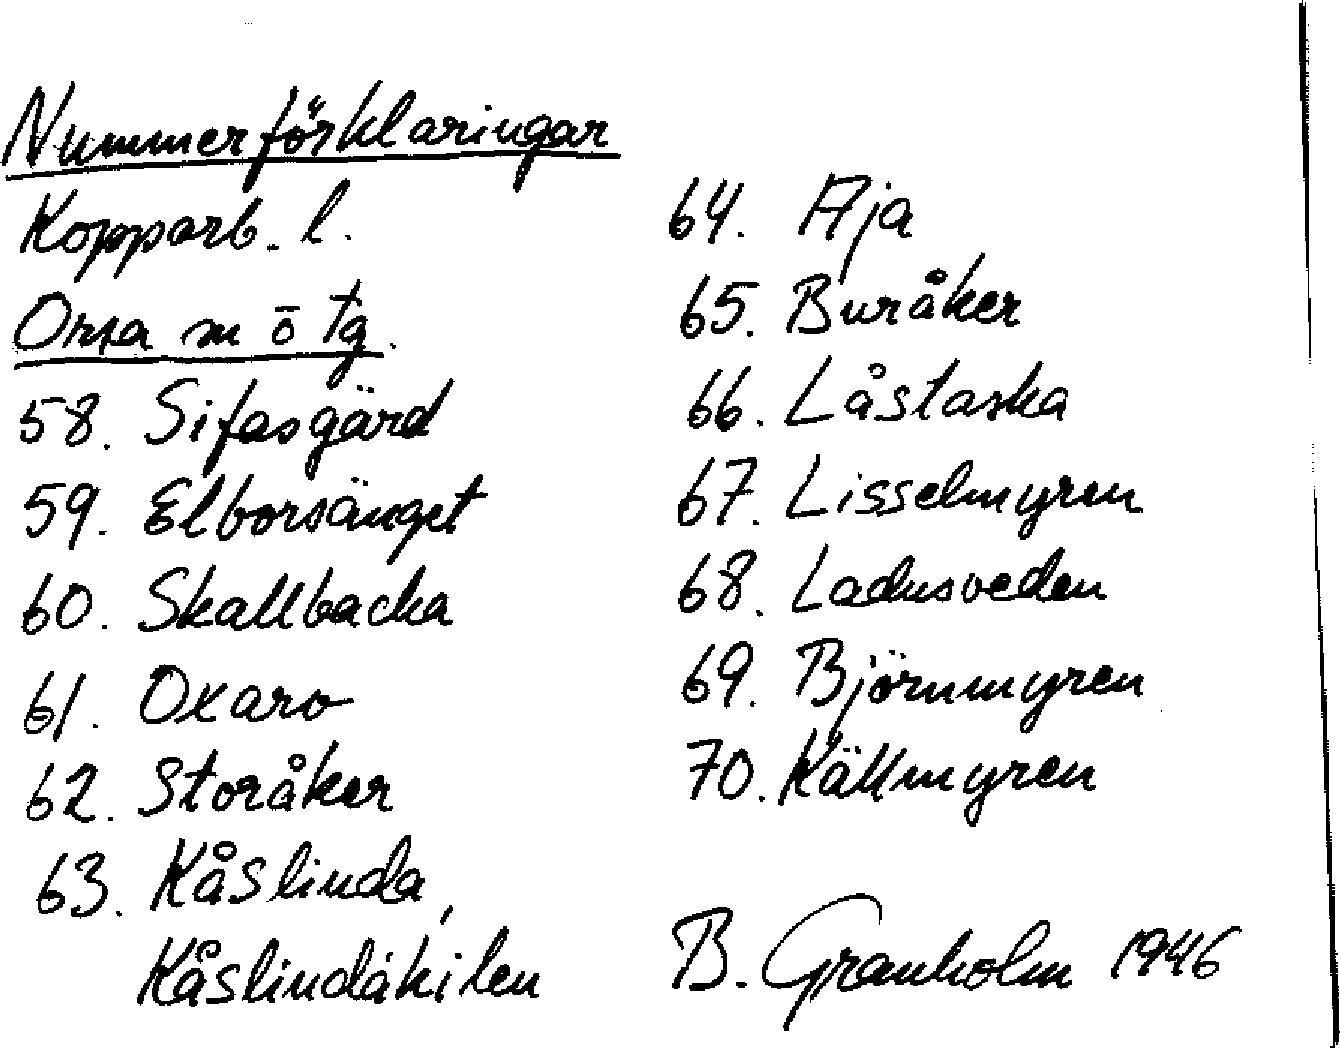 Nummerförklaringar
Kopparb. l.
Orsa m ö tg.
58. Sifasgärd
59. Elborsänget
60. Skallbacka
61. Oxaro
62. Storåker
63. Kåslinda,
Kåslindåkilen
64. Aja
65. Buråker
66. Låstaska
67. Lisselmyren
68. Ladusveden
69. Björnmyren
70. Källmyren
B. Granholm 1946